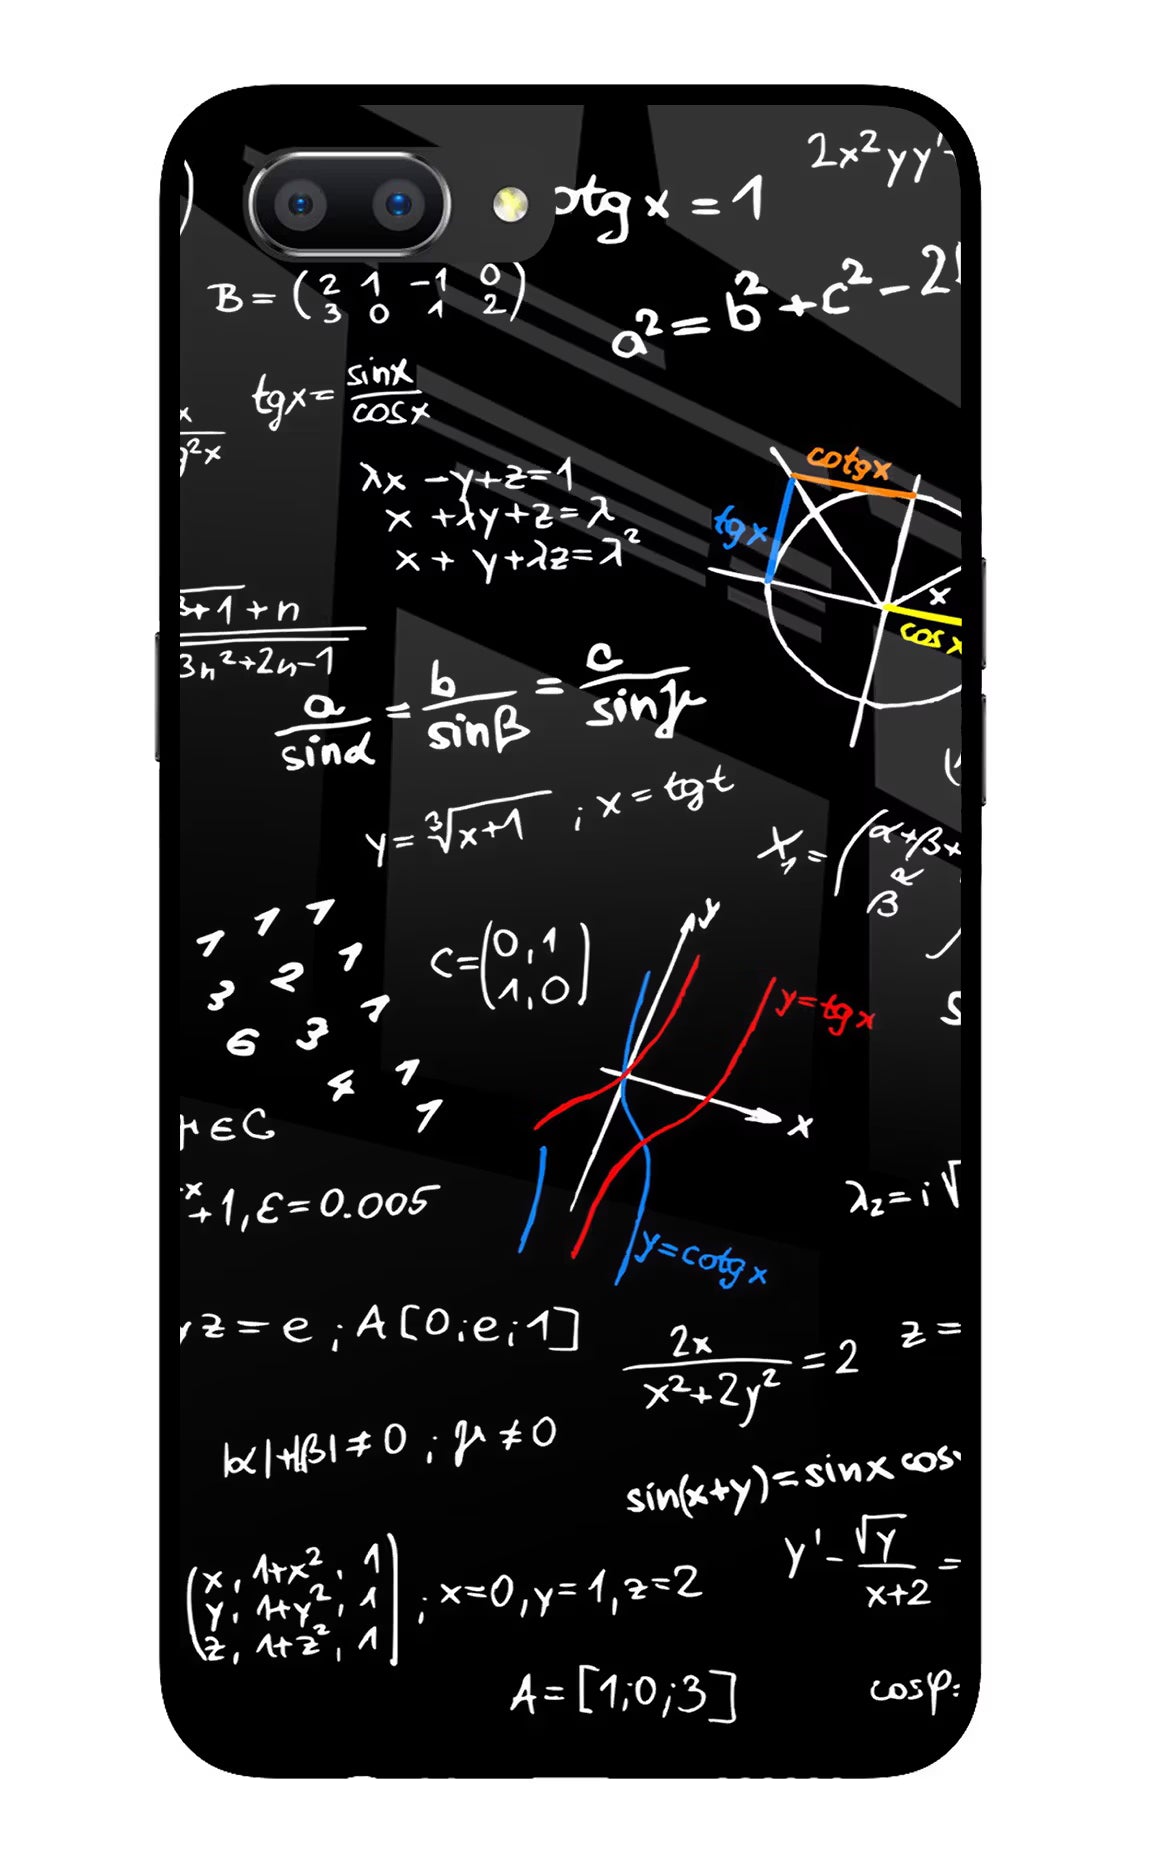 2x²yy'-
otg x = 1
B = (2 1 -1 0
3 0 1 2)
a² = b² + c² - 2
tgx = sinx
cosx
x
g²x
cotgx
λx - y + z = 1
x + λy + z = λ
x + y + λz = λ²
tgx
x
cosx
3+1 + n
3n²+2n-1
a/sinα = b/sinβ = c/sinγ
y = ³√x+1 ; x = tgt
X₁ = (α+β+
β α
1 1 1
3 2 1
6 3 1
4 1
1
C = (0,1
1,0)
y
y=tgx
x
y=cotgx
μ∈C
x
+1, ε=0.005
λ₂=i√
yz = e ; A[0;e;1]
2x
x²+2y² = 2
z =
|α|+|β| ≠ 0 ; μ ≠ 0
sin(x+y) = sinx cos
y' - √y
x+2 =
(x, 1+x², 1
y, 1+y², 1
z, 1+z², 1) ; x=0, y=1, z=2
A = [1;0;3]
cosφ=